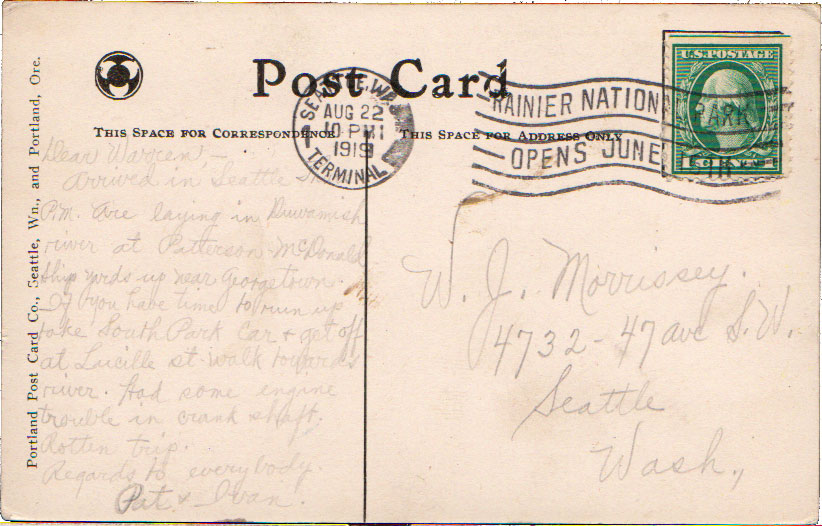 Post Card
THIS SPACE FOR CORRESPONDENCE
THIS SPACE FOR ADDRESS ONLY
Portland Post Card Co., Seattle, Wn., and Portland, Ore.
SEATTLE, WASH.
AUG 22
10 PM
1919
TERMINAL
RAINIER NATION PARK
OPENS JUNE 15TH
U.S. POSTAGE
Dear Warren,-
arrived in Seattle
P.M. Are laying in Duwamish
river at Patterson McDonald
ship yards up near Georgetown.
If you have time to run up
take South Park Car & get off
at Lucille st. walk towards
river. Had some engine
trouble in crank shaft.
Rotten trip.
Regards to everybody.
Pat & Ivan.
W. J. Morrissey.
4732-47 ave S.W.
Seattle
Wash.,